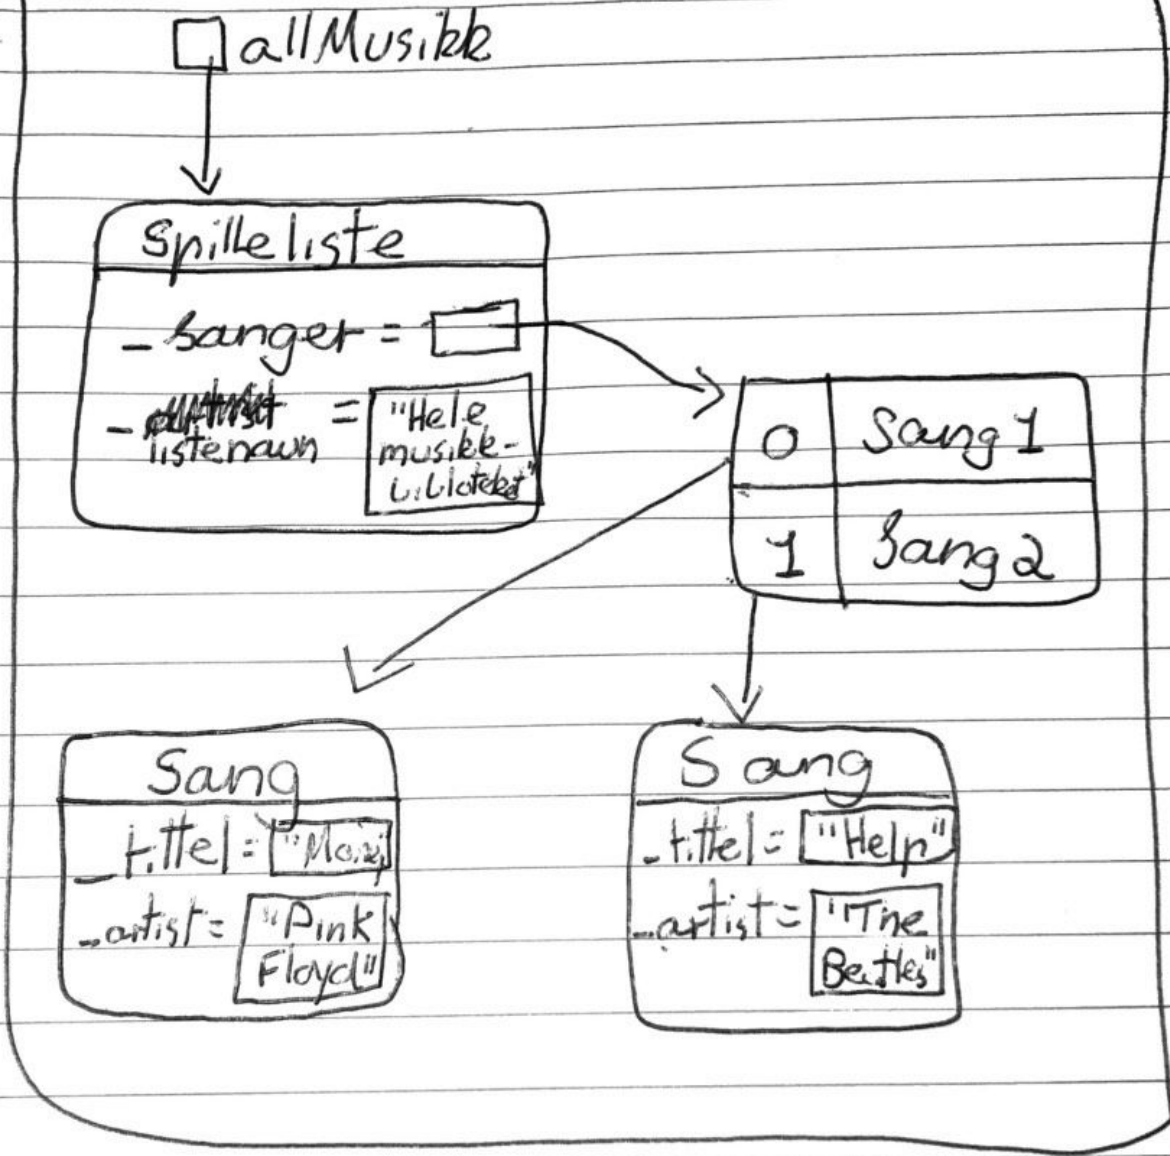 allMusikk
Spilleliste
_sanger =
_listenavn = "Hele
musikk-
0 Sang1
1 Sang2
Sang
_tittel =
_artist = "Pink
Floyd"
Sang
_tittel = "Help"
_artist = "The
Beatles"